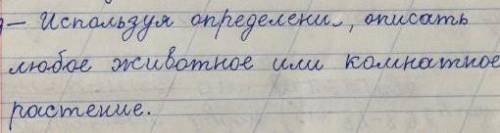 — Используя определени_, описать
любое животное или комнатное
растение.